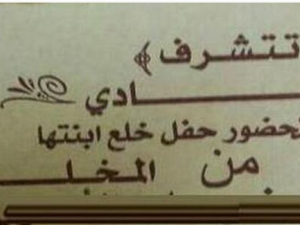 تتشرف ﴾
ـــــادي
لحضور حفل خلع ابنتها
من المخلـــ